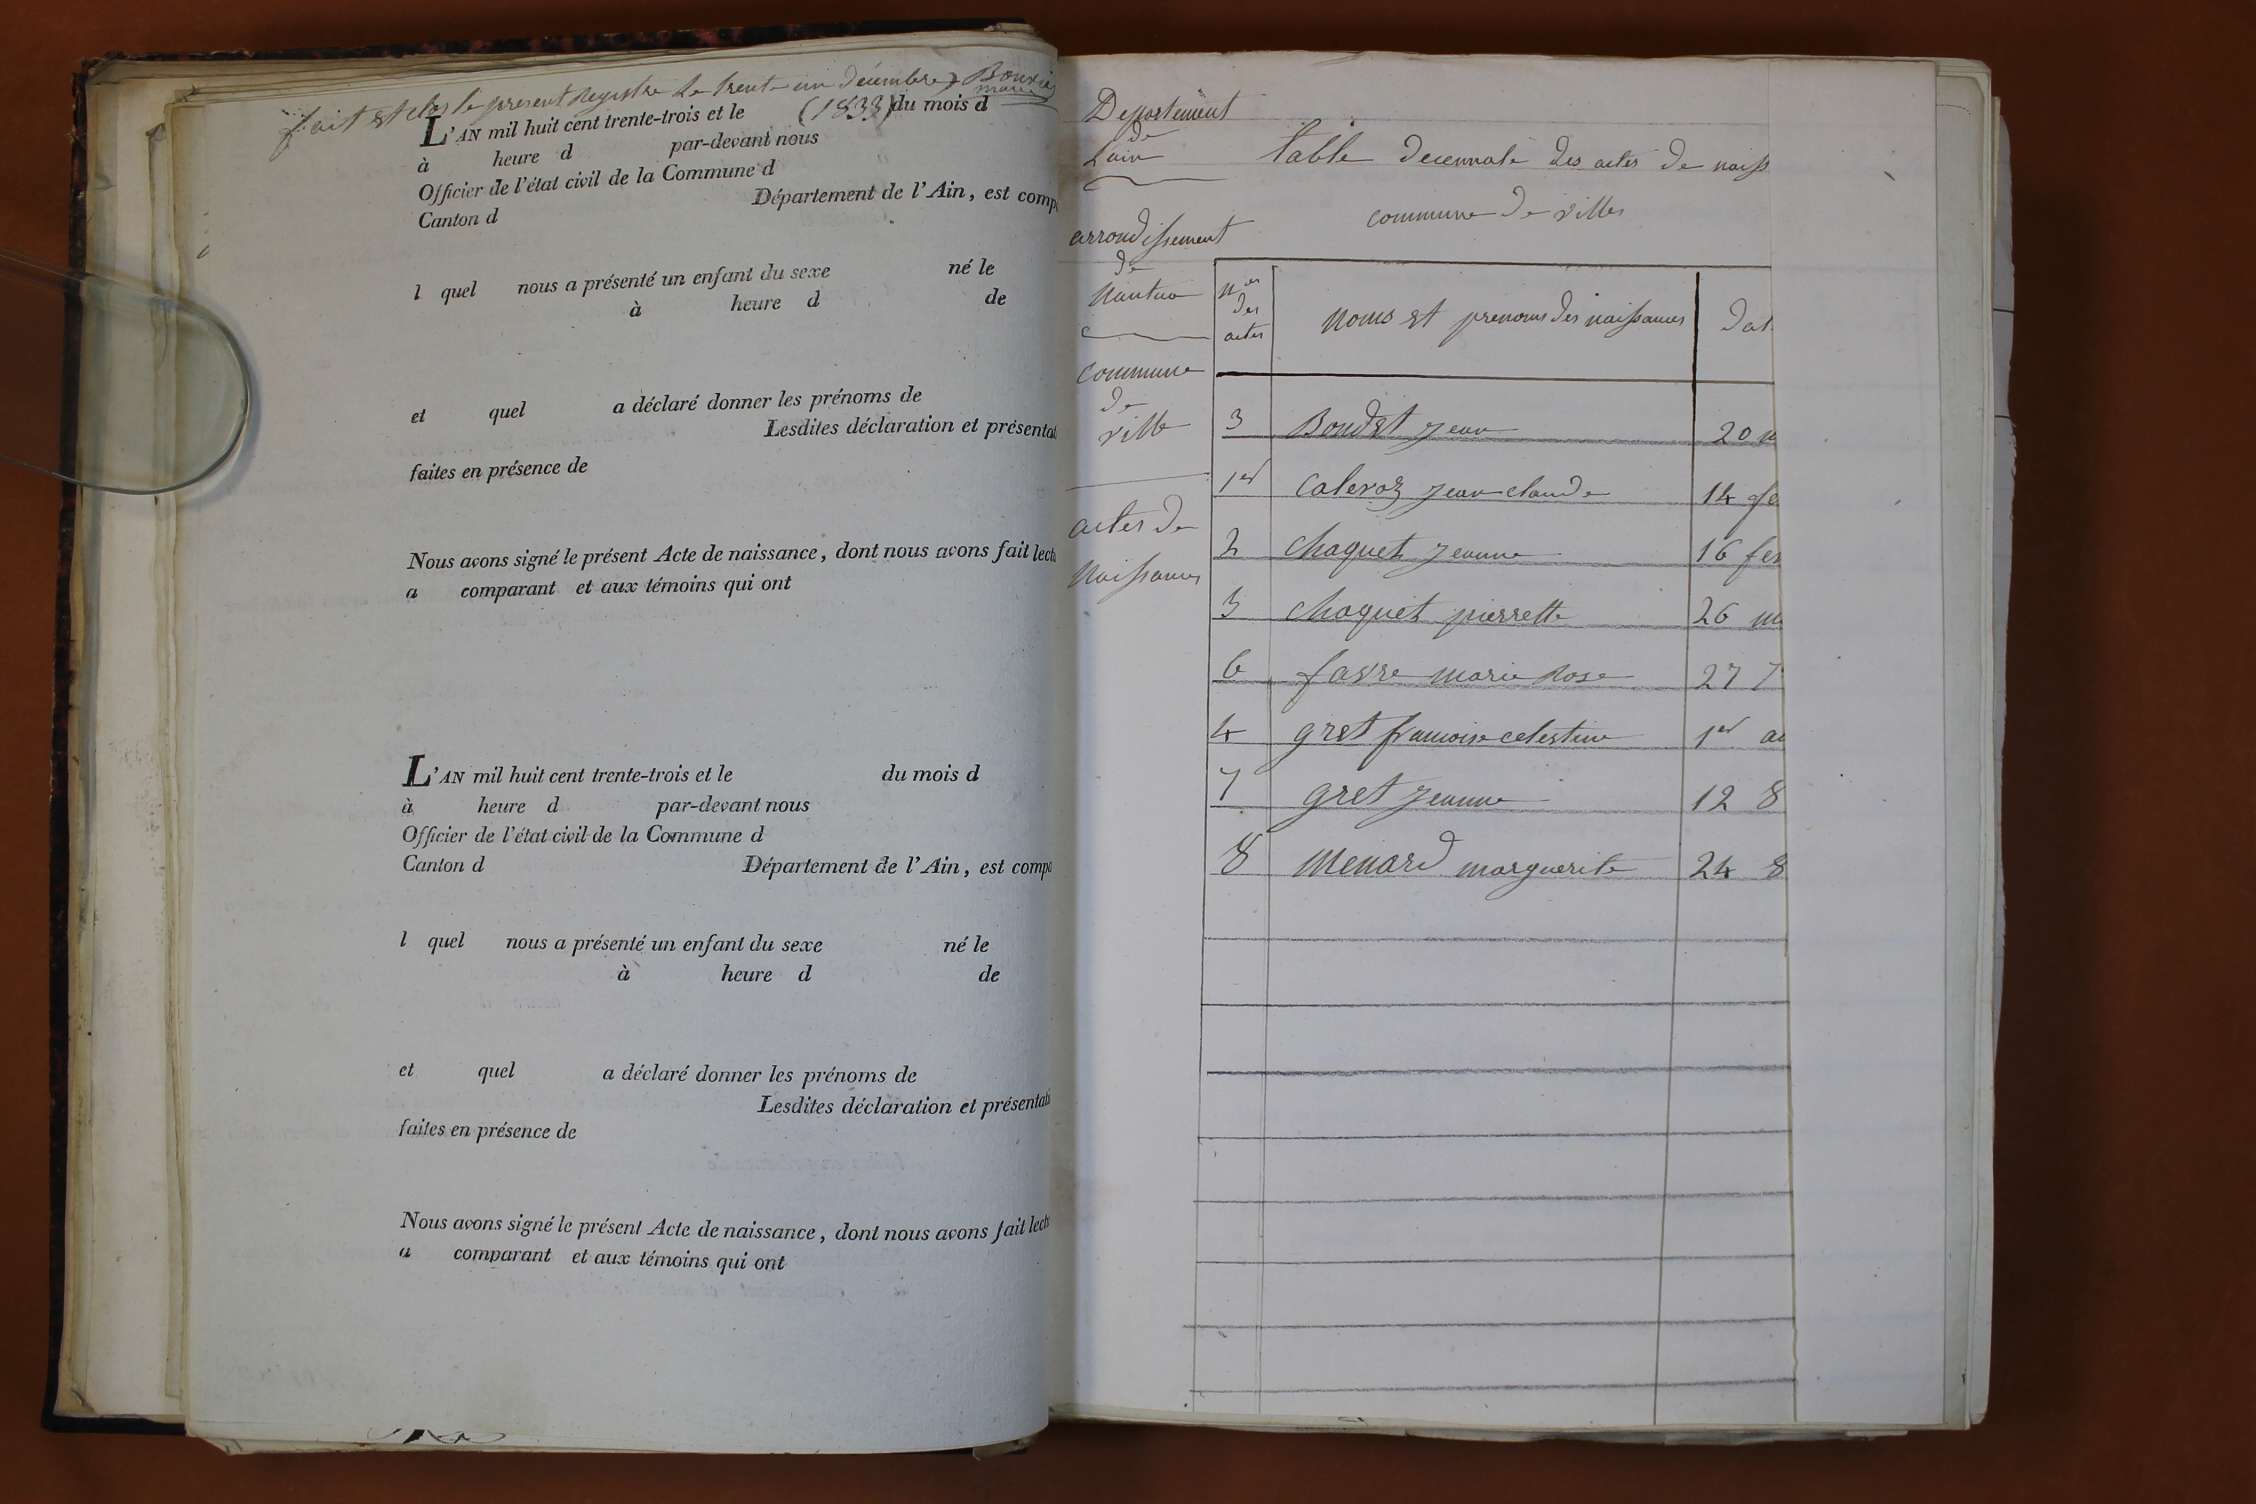 fait et clos le present Registre Le trente un décembre
(1833)
L'AN mil huit cent trente-trois et le du mois d
à heure d par-devant nous
Officier de l'état civil de la Commune d
Canton d Département de l'Ain, est comp
l quel nous a présenté un enfant du sexe né le
à heure d de
et quel a déclaré donner les prénoms de
Lesdites déclaration et présentat
faites en présence de
Nous avons signé le présent Acte de naissance, dont nous avons fait lect
a comparant et aux témoins qui ont
L'AN mil huit cent trente-trois et le du mois d
à heure d par-devant nous
Officier de l'état civil de la Commune d
Canton d Département de l'Ain, est comp
l quel nous a présenté un enfant du sexe né le
à heure d de
et quel a déclaré donner les prénoms de
Lesdites déclaration et présentati
faites en présence de
Nous avons signé le présent Acte de naissance, dont nous avons fait lect
a comparant et aux témoins qui ont
Departement
de
Lain
arrondissement
de
Nantua
commune
de
ville
actes de
Naissances
table decennale des actes de naiss
commune de villes
Nos des actes Noms et prenoms des naissances dat
3 Boudet jean 20 m
1er Calevoz jean claude 14 fe
2 Chaquet jeanne 16 fev
3 Chaquet pierrette 26 ma
6 favre marie Rose 27 7
4 gret francoise celestine 1er ao
7 gret jeanne 12 8
8 Menard marguerite 24 8